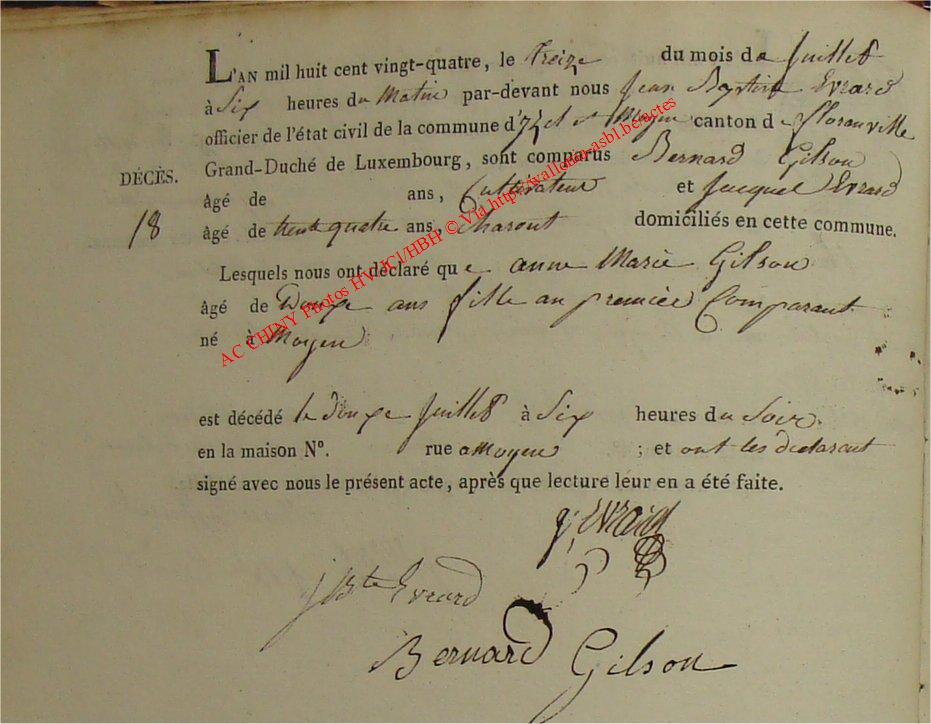 L'AN mil huit cent vingt-quatre, le treize du mois de Juillet
à Six heures du Matin par-devant nous Jean Baptiste Evrard
officier de l'état civil de la commune d'Izel et Moyen canton de floranville
Grand-Duché de Luxembourg, sont comparus Bernard Gilson
DÉCÈS.
âgé de ans, Cultivateur et Jacques Evrard
18
âgé de trente quatre ans, Charont domiciliés en cette commune.
Lesquels nous ont déclaré que anne Marie Gilson
âgé de Douze ans fille au premier Comparant
né à Moyen
est décédé le douze Juillet à Six heures du Soir
en la maison N°. rue a Moyen ; et ont les declarant
signé avec nous le présent acte, après que lecture leur en a été faite.
j; Evrard
J Bte Evrard
Bernard Gilson
AC CHINY Photos HVJCl/HBH © Via http://wallonia-asbl.be/actes